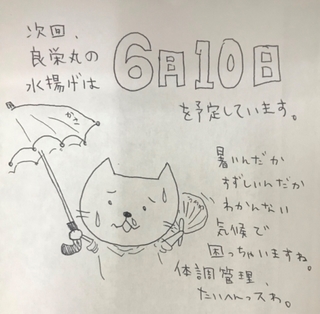 次回、
良栄丸の
水揚げは
6日10日
を予定しています。
かさ
うちわ
暑いんだか
すずしいんだか
わかんない
気候で
困っちゃいますね。
体調管理、
たいへんっスわ。